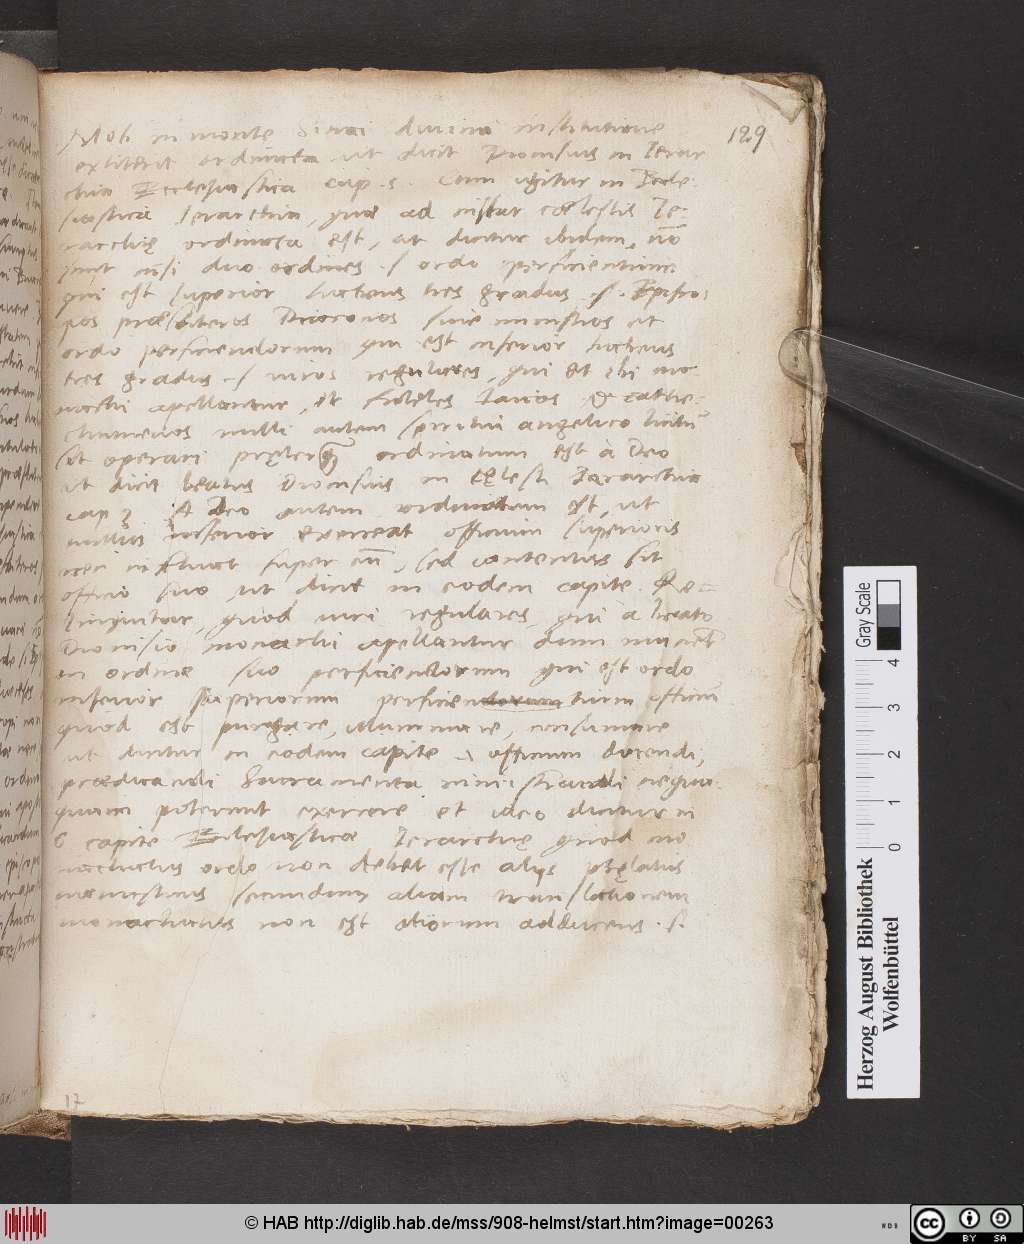 129
Mosi in monte Sinai divina institutione
extiterit ordinata ut dicit Dionisius in Ierar
chia Ecclesiastica cap. 5. Cum igitur in Eccle-
siastica Ierarchia, quæ ad instar cœlestis Ie-
rarchię ordinata est, ut dicitur ibidem, nõ
sint nisi duo ordines .s ordo perficientium
qui est superior habens tres gradus .s. Episco
pos præsbiteros Diaconos sive ministros et
ordo perficiendorum qui est inferior habens
tres gradus .s viros regulares, qui et ibi mo
nachi apellantur, et fideles laicos & cathe-
chumenos nulli autem spiritui angelico licitũ
sit operari pręter ordinatum est à Deo
ut dicit beatus Dionisius in cęlesti Ierarchia
cap 3 A Deo autem ordinatum est, ut
nullus inferior exerceat officium superioris
nec influat super eũ, sed contentus sit
officio suo ut dicit in eodem capite. Re-
linquitur, quod viri regulares qui a beato
Dionisio monachi apellantur dum manent
in ordine suo perficiendorum qui est ordo
inferior superiorum perficientium officium
quod est purgare, illuminare, consumare
ut dicitur in eodem capite .i. officium docendi,
prædicandi Sacramenta ministrandi nequa-
quam poterunt exercere et ideo dicitur in
6 capite Eclesiasticæ Ierarchię quod mo
nachalis ordo non debet esse alijs pręlatus
secundum aliam translationem
monachatus non est aliorum adducens .s.
17
Herzog August Bibliothek
Wolfenbüttel
0 1 2 3 4
Gray Scale
© HAB http://diglib.hab.de/mss/908-helmst/start.htm?image=00263
WDB
cc BY SA